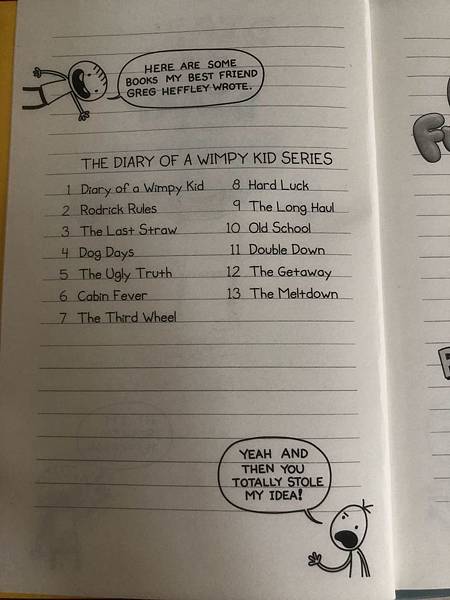 HERE ARE SOME
BOOKS MY BEST FRIEND
GREG HEFFLEY WROTE.
THE DIARY OF A WIMPY KID SERIES
1 Diary of a Wimpy Kid
2 Rodrick Rules
3 The Last Straw
4 Dog Days
5 The Ugly Truth
6 Cabin Fever
7 The Third Wheel
8 Hard Luck
9 The Long Haul
10 Old School
11 Double Down
12 The Getaway
13 The Meltdown
YEAH AND
THEN YOU
TOTALLY STOLE
MY IDEA!